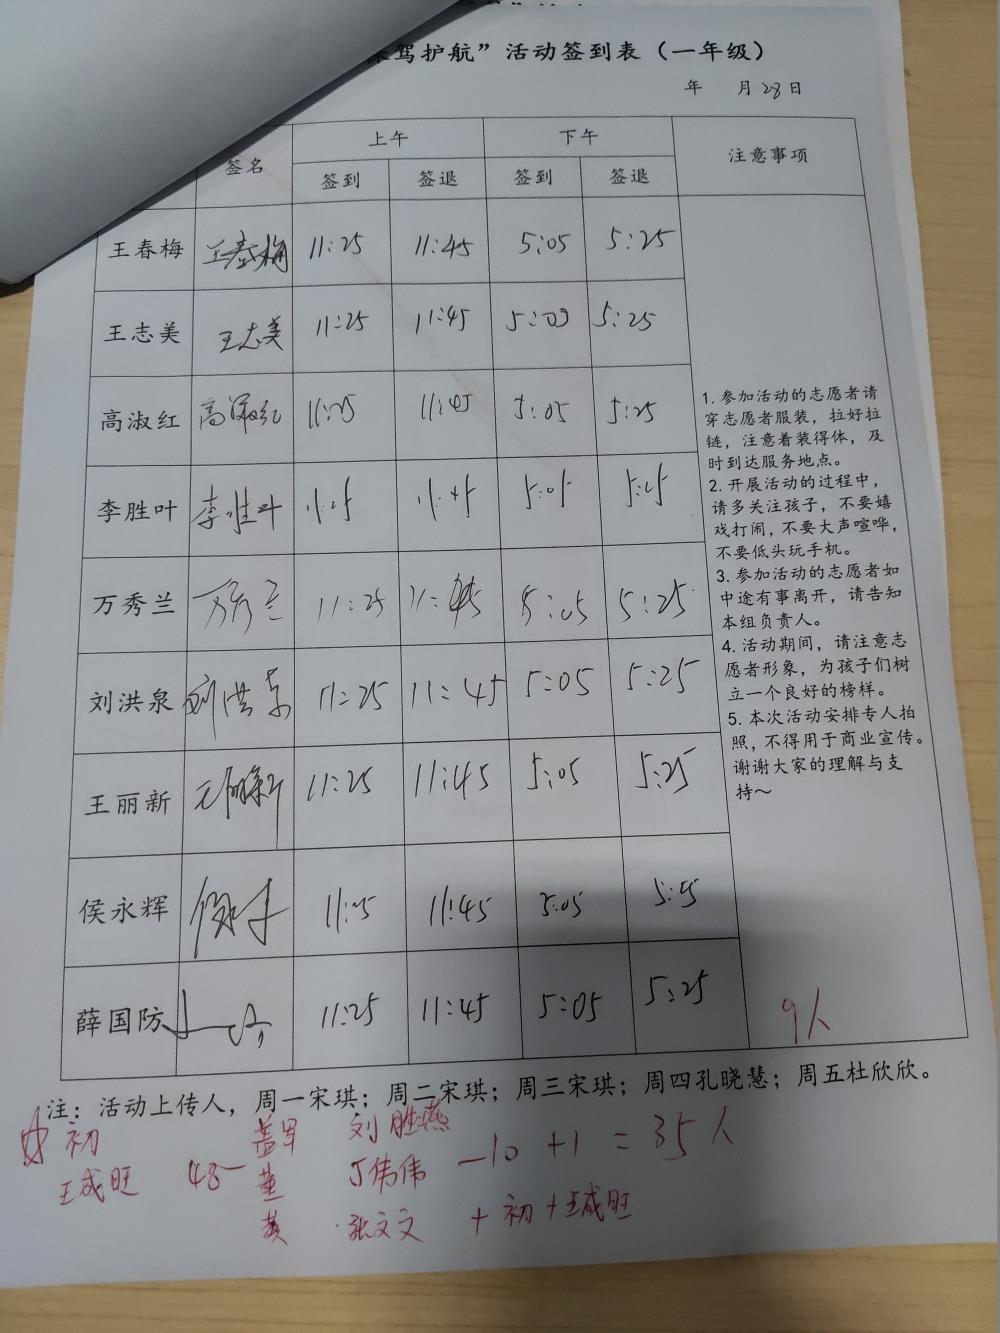 驾护航”活动签到表（一年级）
年 月28日
签名 上午 下午 注意事项
签到 签退 签到 签退
王春梅 王春梅 11:25 11:45 5:05 5:25
王志美 王志美 11:25 11:45 5:05 5:25
高淑红 高淑红 11:25 11:45 5:05 5:25
李胜叶 李胜叶 11:25 11:45 5:05 5:25
万秀兰 万秀兰 11:25 11:45 5:05 5:25
刘洪泉 刘洪泉 11:25 11:45 5:05 5:25
王丽新 王丽新 11:25 11:45 5:05 5:25
侯永辉 11:25 11:45 5:05 5:25
薛国防 11:25 11:45 5:05 5:25
1. 参加活动的志愿者请
穿志愿者服装，拉好拉
链，注意着装得体，及
时到达服务地点。
2. 开展活动的过程中，
请多关注孩子，不要嬉
戏打闹，不要大声喧哗，
不要低头玩手机。
3. 参加活动的志愿者如
中途有事离开，请告知
本组负责人。
4. 活动期间，请注意志
愿者形象，为孩子们树
立一个良好的榜样。
5. 本次活动安排专人拍
照，不得用于商业宣传。
谢谢大家的理解与支
持～
9人
注：活动上传人，周一宋琪；周二宋琪；周三宋琪；周四孔晓慧；周五杜欣欣。
初 刘胜燕 -10 +1 = 35人
王成旺 48- 董 丁伟伟
黄 张文文 + 初 + 王成旺